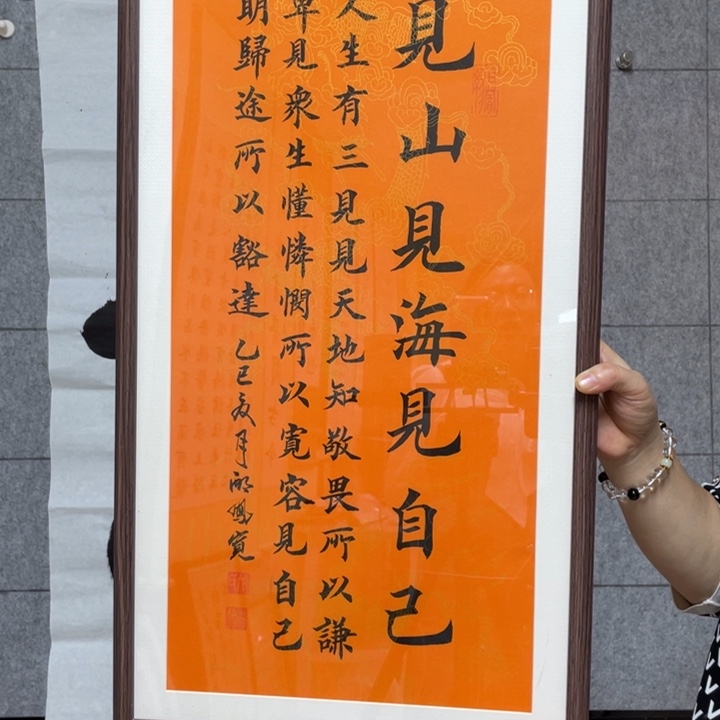 見山見海見自己
人生有三見見天地知敬畏所以謙
卑見衆生懂憐憫所以寬容見自己
明歸途所以豁達 乙巳夏月鳳寬